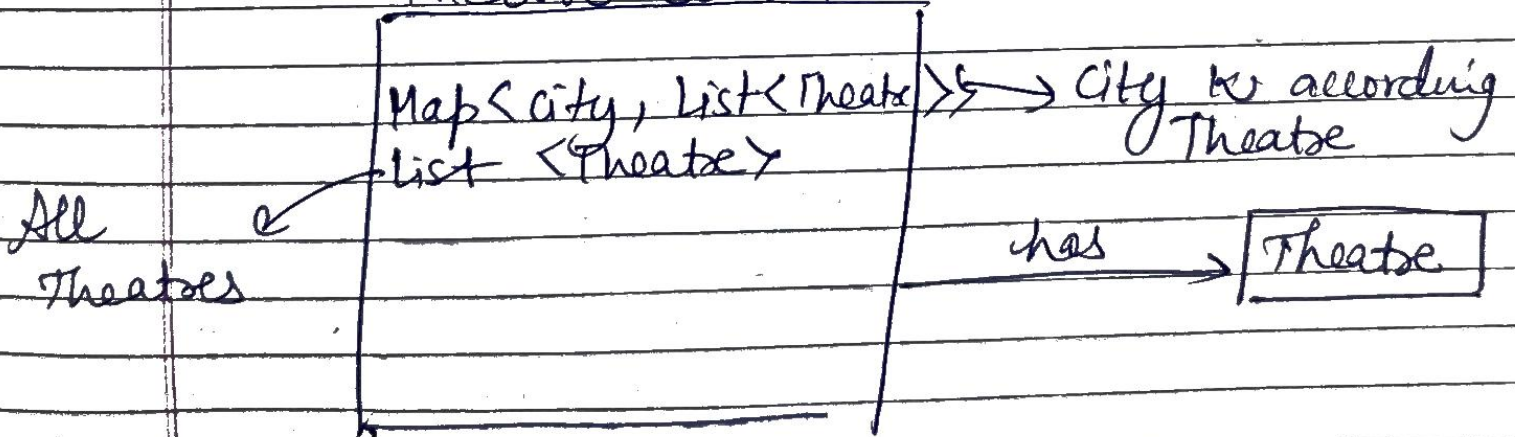 Map<City, List<Theatre>>; → City ke according
Theatre
List <Theatre>
All
Theatres
has
Theatre